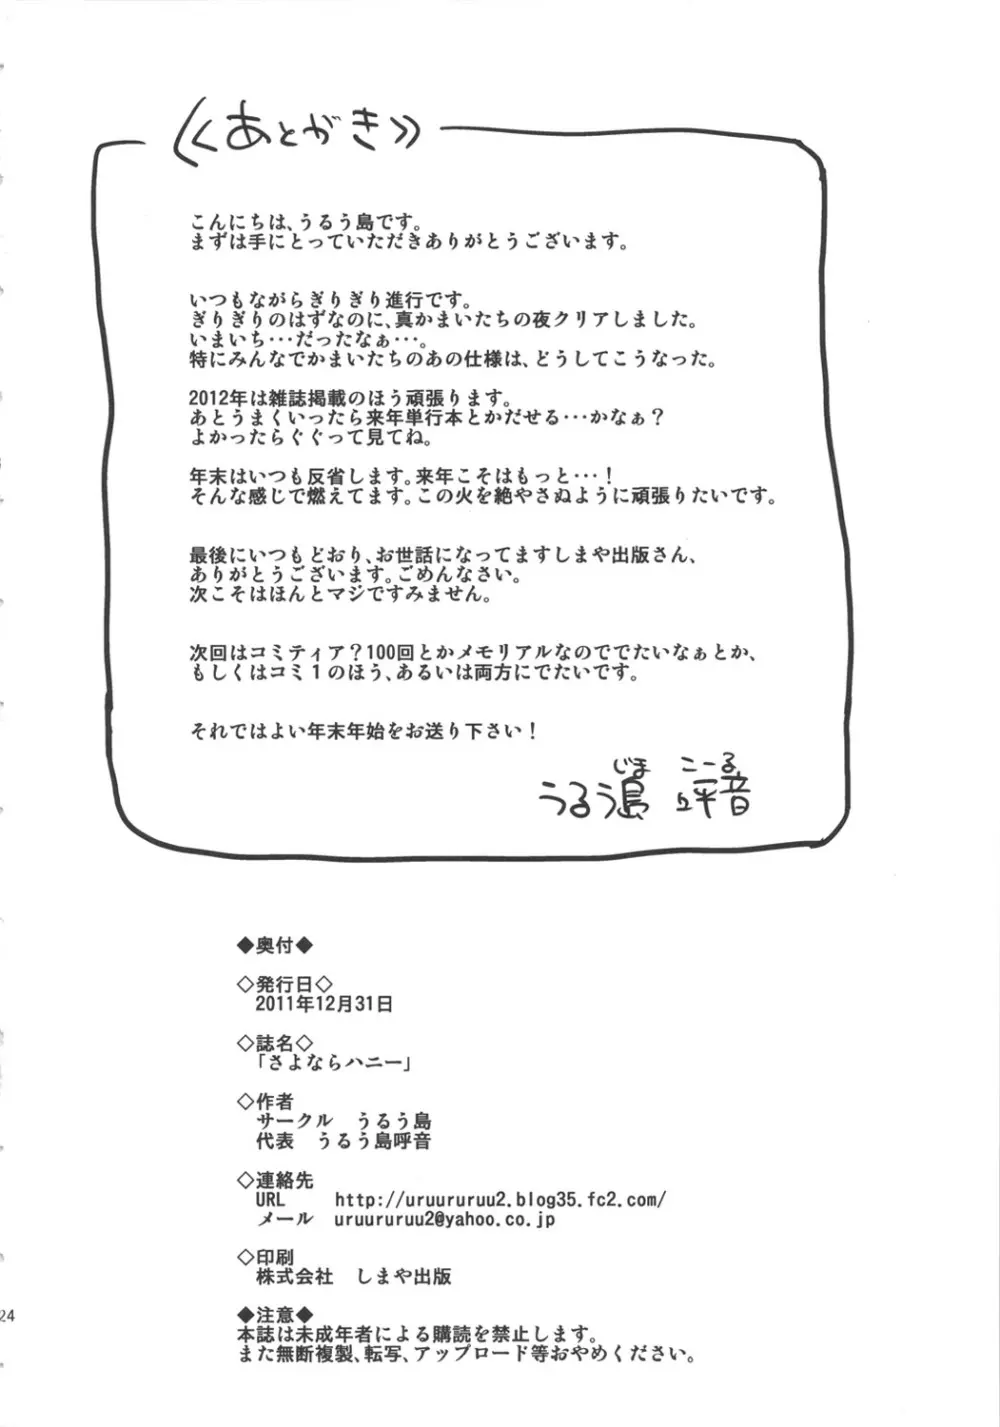 ≪あとがき≫
こんにちは、うるう島です。
まずは手にとっていただきありがとうございます。
いつもながらぎりぎり進行です。
ぎりぎりのはずなのに、真かまいたちの夜クリアしました。
いまいち・・・だったなぁ・・・。
特にみんなでかまいたちのあの仕様は、どうしてこうなった。
2012年は雑誌掲載のほう頑張ります。
あとうまくいったら来年単行本とかだせる・・・かなぁ？
よかったらぐぐって見てね。
年末はいつも反省します。来年こそはもっと・・・！
そんな感じで燃えてます。この火を絶やさぬように頑張りたいです。
最後にいつもどおり、お世話になってますしまや出版さん、
ありがとうございます。ごめんなさい。
次こそはほんとマジですみません。
次回はコミティア？100回とかメモリアルなのででたいなぁとか、
もしくはコミ１のほう、あるいは両方にでたいです。
それではよい年末年始をお送り下さい！
じま こーる
うるう島 呼音
◆奥付◆
◇発行日◇
2011年12月31日
◇誌名◇
「さよならハニー」
◇作者
サークル　うるう島
代表　うるう島呼音
◇連絡先
URL　http://uruururuu2.blog35.fc2.com/
メール　uruururuu2@yahoo.co.jp
◇印刷
株式会社　しまや出版
◆注意◆
本誌は未成年者による購読を禁止します。
また無断複製、転写、アップロード等おやめください。
24